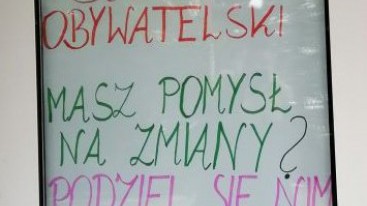 OBYWATELSKI
MASZ POMYSŁ
NA ZMIANY?
PODZIEL SIĘ NIM